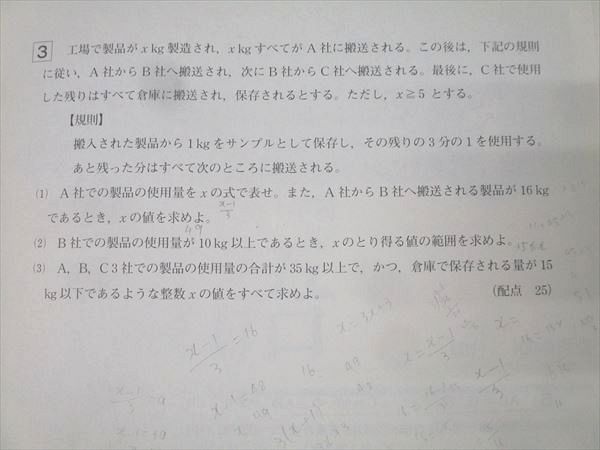 3 工場で製品がx kg 製造され，x kg すべてが A 社に搬送される。この後は，下記の規則
に従い，A 社から B 社へ搬送され，次に B 社から C 社へ搬送される。最後に，C 社で使用
した残りはすべて倉庫に搬送され，保存されるとする。ただし，x≧5 とする。
【規則】
搬入された製品から 1 kg をサンプルとして保存し，その残りの 3 分の 1 を使用する。
あと残った分はすべて次のところに搬送される。
(1) A 社での製品の使用量を x の式で表せ。また，A 社から B 社へ搬送される製品が 16 kg
であるとき，x の値を求めよ。
x-1/3
49
(2) B 社での製品の使用量が 10 kg 以上であるとき，x のとり得る値の範囲を求めよ。
(3) A，B，C 3 社での製品の使用量の合計が 35 kg 以上で，かつ，倉庫で保存される量が 15
kg 以下であるような整数 x の値をすべて求めよ。
(配点 25)
x-1/3 = 16
x-1=48
49